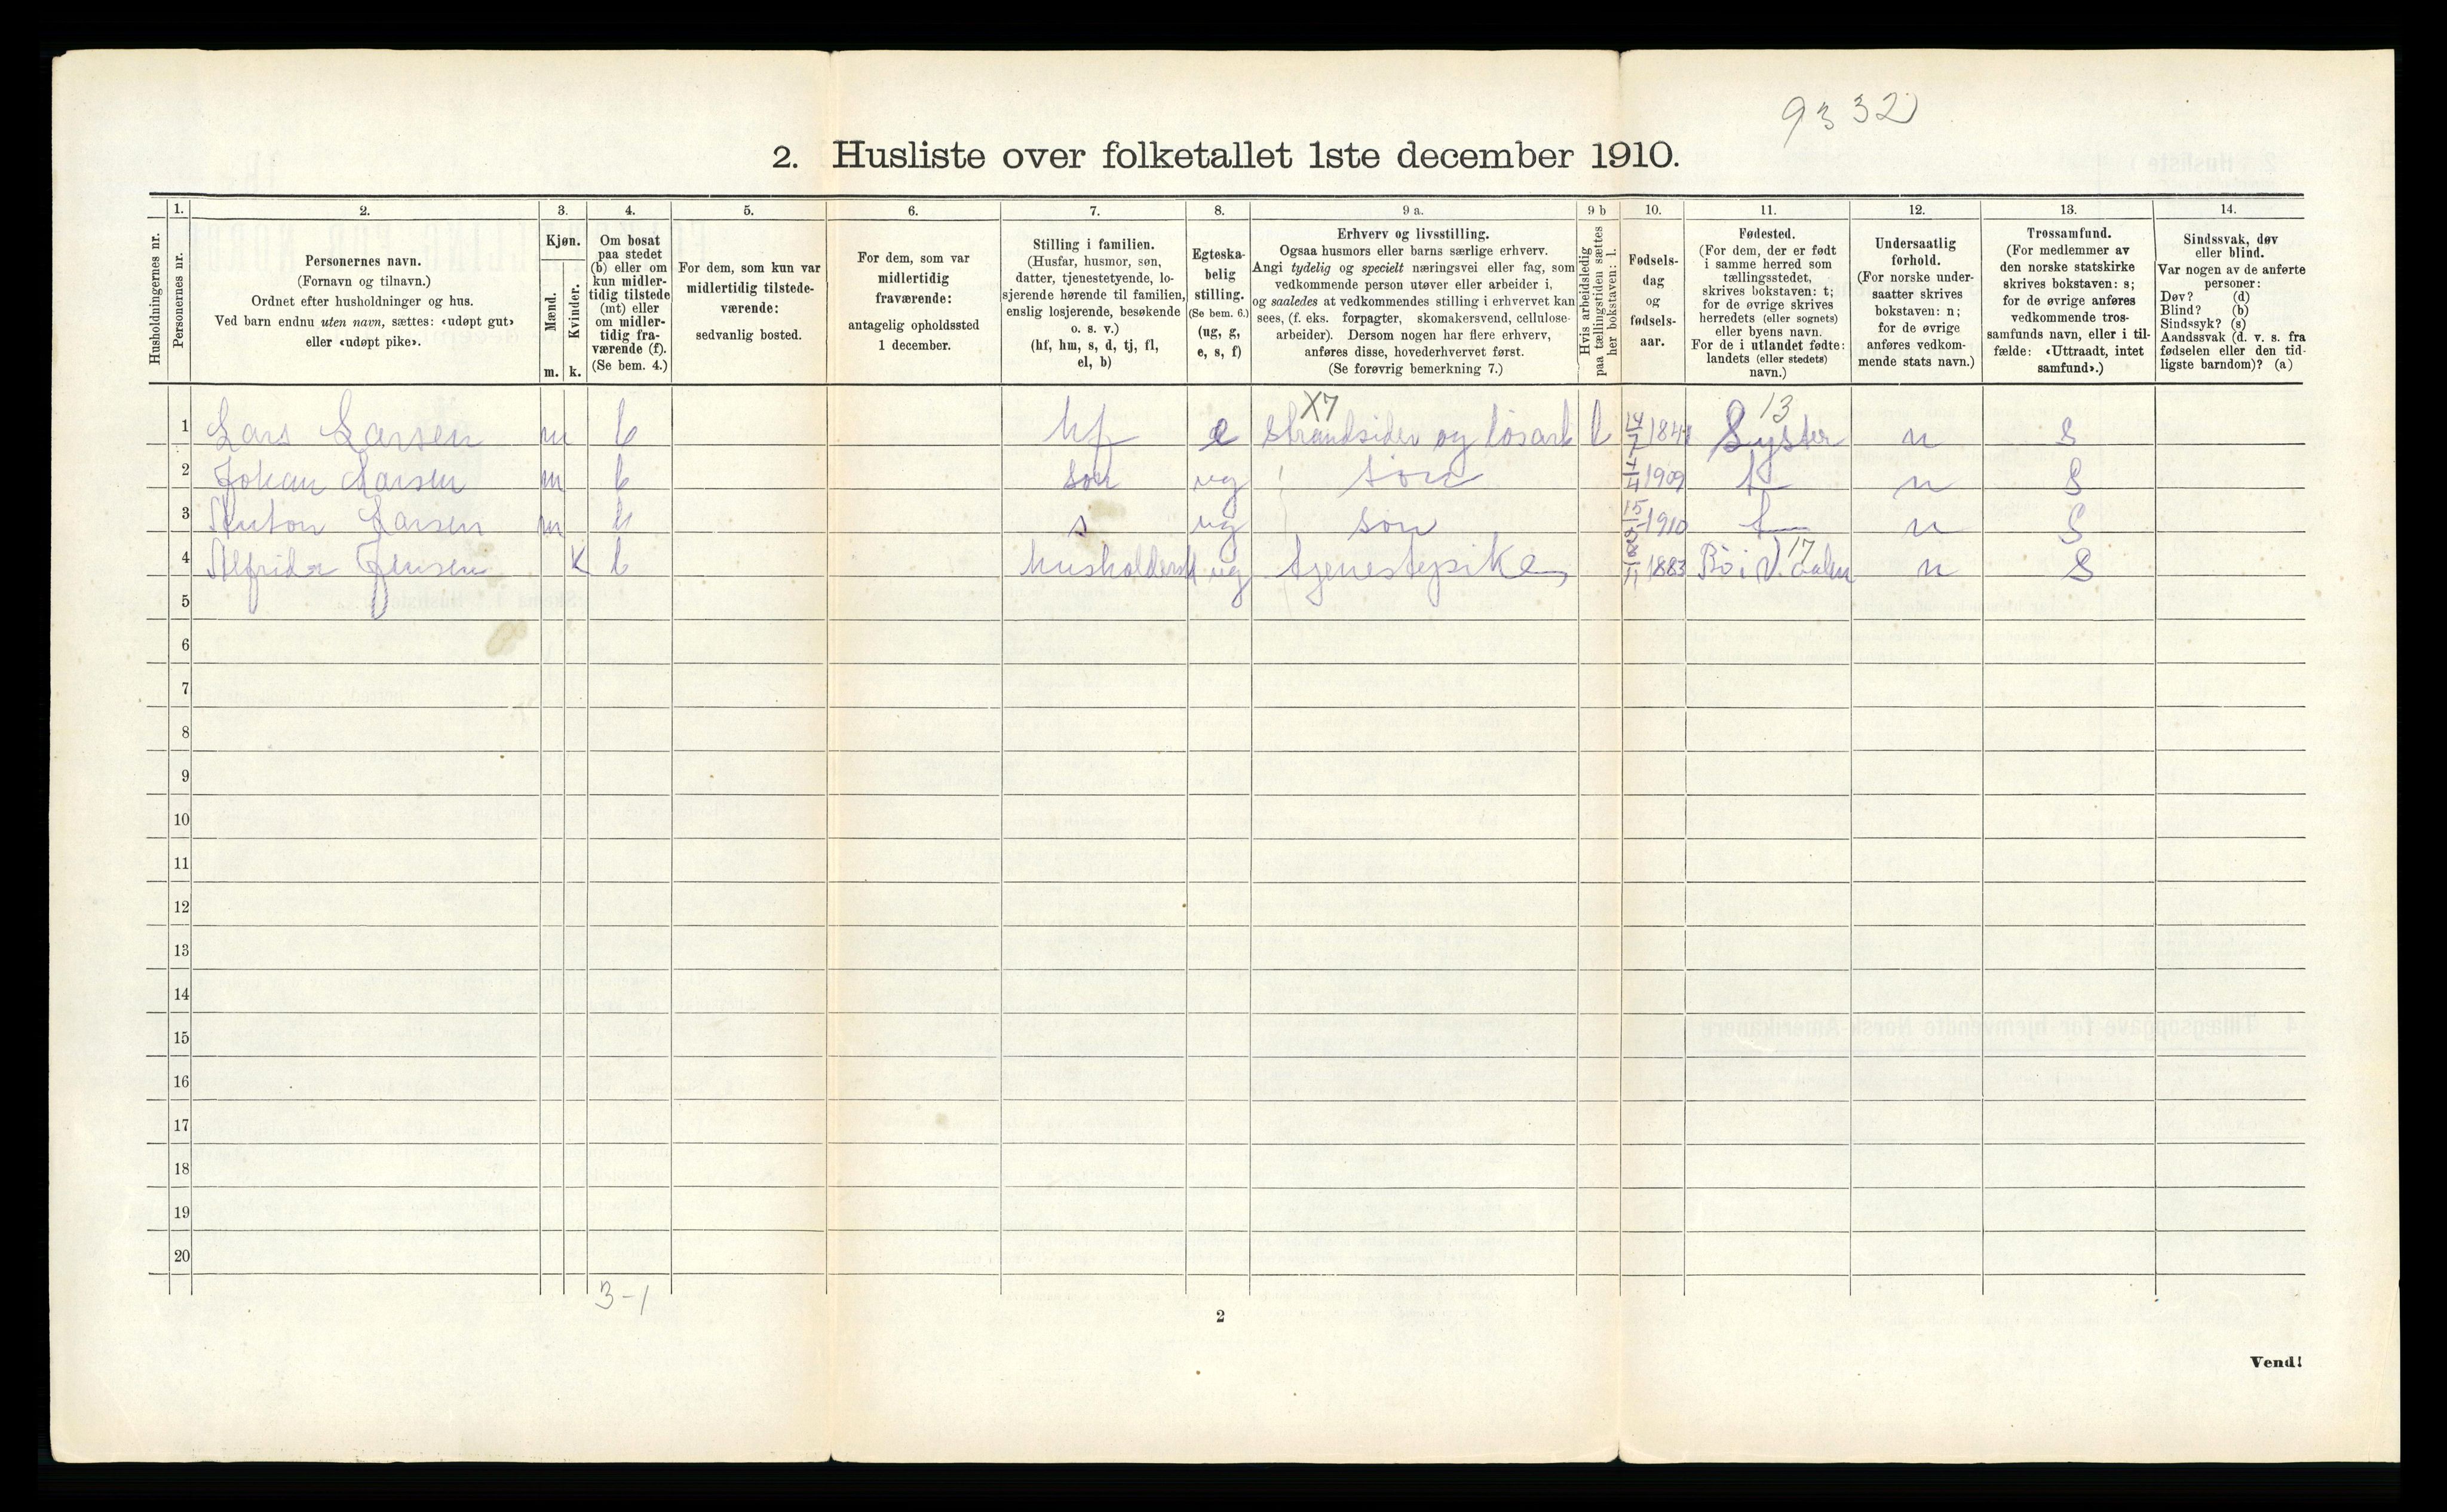 9332
2. Husliste over folketallet 1ste december 1910.
1. 2. 3. 4. 5. 6. 7. 8. 9 a. 9 b 10. 11. 12. 13. 14.
Husholdningernes nr.
Personernes nr.
Personernes navn.
(Fornavn og tilnavn.)
Ordnet efter husholdninger og hus.
Ved barn endnu uten navn, sættes: «udøpt gut»
eller «udøpt pike».
Kjøn.
Mænd.
Kvinder.
m. k.
Om bosat
paa stedet
(b) eller om
kun midler-
tidig tilstede
(mt) eller
om midler-
tidig fra-
værende (f).
(Se bem. 4.)
For dem, som kun var
midlertidig tilstede-
værende:
sedvanlig bosted.
For dem, som var
midlertidig
fraværende:
antagelig opholdssted
1 december.
Stilling i familien.
(Husfar, husmor, søn,
datter, tjenestetyende, lo-
sjerende hørende til familien,
enslig losjerende, besøkende
o. s. v.)
(hf, hm, s, d, tj, fl,
el, b)
Egteska-
belig
stilling.
(Se bem. 6.)
(ug, g,
e, s, f)
Erhverv og livsstilling.
Ogsaa husmors eller barns særlige erhverv.
Angi tydelig og specielt næringsvei eller fag, som
vedkommende person utøver eller arbeider i,
og saaledes at vedkommendes stilling i erhvervet kan
sees, (f. eks. forpagter, skomakersvend, cellulose-
arbeider). Dersom nogen har flere erhverv,
anføres disse, hovederhvervet først.
(Se forøvrig bemerkning 7.)
Hvis arbeidsledig
paa tællingstiden sættes
her bokstaven: l.
Fødsels-
dag
og
fødsels-
aar.
Fødested.
(For dem, der er født
i samme herred som
tællingsstedet,
skrives bokstaven: t;
for de øvrige skrives
herredets (eller sognets)
eller byens navn.
For de i utlandet fødte:
landets (eller stedets)
navn.)
Undersaatlig
forhold.
(For norske under-
saatter skrives
bokstaven: n;
for de øvrige
anføres vedkom-
mende stats navn.)
Trossamfund.
(For medlemmer av
den norske statskirke
skrives bokstaven: s;
for de øvrige anføres
vedkommende tros-
samfunds navn, eller i til-
fælde: «Uttraadt, intet
samfund».)
Sindssvak, døv
eller blind.
Var nogen av de anførte
personer:
Døv? (d)
Blind? (b)
Sindssyk? (s)
Aandssvak (d. v. s. fra
fødselen eller den tid-
ligste barndom)? (a)
X7 13
1 Lars Larsen m b hf e Strandsider og løsarb l 14/7 184 Lyster n S
2 Johan Larsen m b son ug son 1909 t n S
3 Anton Larsen m b s ug son 15 1910 t n S
17
4 Alfrida Jensen K b husholdersk ug tjenestepike 11 1883 Bø i V.aalen n S
5
6
7
8
9
10
11
12
13
14
15
16
17
18
19
20
3-1
2
Vend!